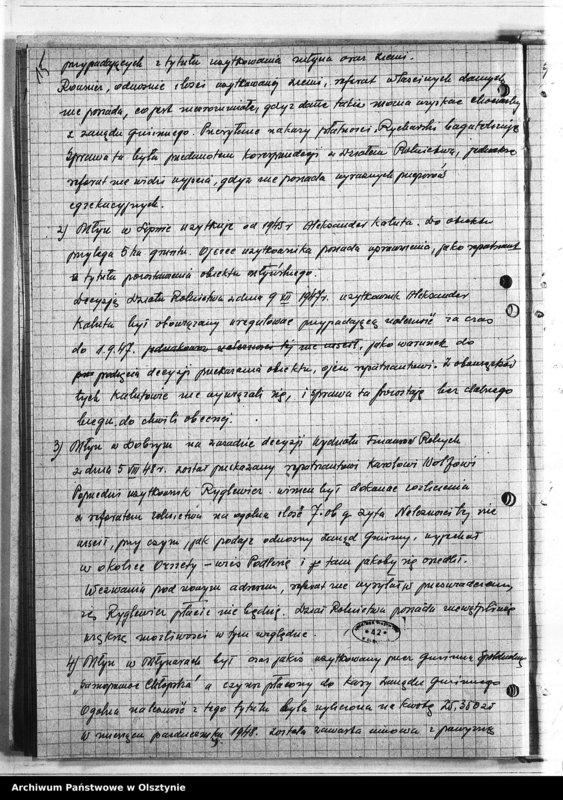 przypadających z tytułu użytkowania młyna oraz ziemi.
Również, odnośnie ilości użytkowanej ziemi, referat właściwych danych
nie posiada, co jest niezrozumiałe, gdyż dane takie można uzyskać chociażby
z zarządu gminnego. Przesyłane nakazy płatności, Rycharski bagatelizuje
Sprawa ta była przedmiotem korespondencji z Działem Rolnictwa, jednakże
referat nie widzi wyjścia, gdyż nie posiada wyraźnych
egzekucyjnych.
2) Młyn w Lipnie użytkuje od 1945 r Aleksander Kaluta. Do obiektu
przylega 5 ha gruntu. Ojciec użytkownika posiada uprawnienia, jako repatriant
z tytułu pozostawienia obiektu młyńskiego.
Decyzją Działu Rolnictwa z dnia 9 VII 1947 r. użytkownik Aleksander
Kaluta był obowiązany uregulować przypadającą należność za czas
do 1.9.47. jednakowoż należności tej nie uiścił, jako warunek do
decyzji przekazania obiektu, ojcu repatriantowi. Z obowiązków
tych Kalutowie nie wywiązali się, i sprawa ta pozostaje bez dalszego
biegu do chwili obecnej.
3) Młyn w Dobrym na zasadzie decyzji Wydziału Finansów Rolnych
z dnia 5 VIII 48 r. został przekazany repatriantowi Karolowi Wolfowi
Poprzedni użytkownik Ryglewicz winien był dokonać rozliczenia
z referatem rolnictwa na ogólną ilość 7.06 q żyta Należności tej nie
uiścił, przy czym, jak podaje odnośny Zarząd Gminny, wyjechał
w okolice Orzety - wieś Podlesie i tam jakoby się osiedlił.
Wezwania pod nowym adresem, referat nie wysyłał w przeświadczeniu,
że Ryglewicz płacić nie będzie. Dział Rolnictwa posiada niewątpliwie
większe możliwości w tym względzie.
42
4) Młyn w Młynarach był czas jakiś użytkowany przez gminną Spółdzielnię
"Samopomoc Chłopska" a czynsz płacony do kasy Zarządu Gminnego
Ogólna należność z tego tytułu była wyliczona na kwotę 25,350 zł
W miesiącu październiku 1948. została zawarta umowa z
Archiwum Państwowe w Olsztynie